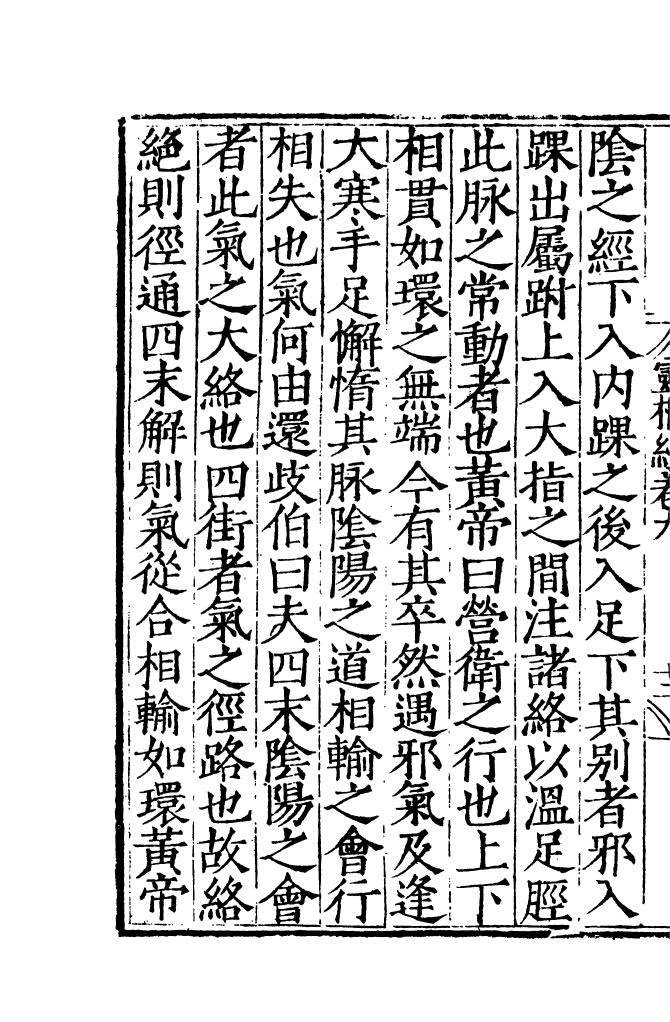 陰之經下入内踝之後入足下其别者邪入
踝出屬跗上入大指之間注諸絡以溫足脛
此脉之常動者也黃帝曰營衛之行也上下
相貫如環之無端今有其卒然遇邪氣及逢
大寒手足懈惰其脉陰陽之道相輸之會行
相失也氣何由還歧伯曰夫四末陰陽之會
者此氣之大絡也四街者氣之徑路也故絡
絶則徑通四末解則氣從合相輸如環黃帝